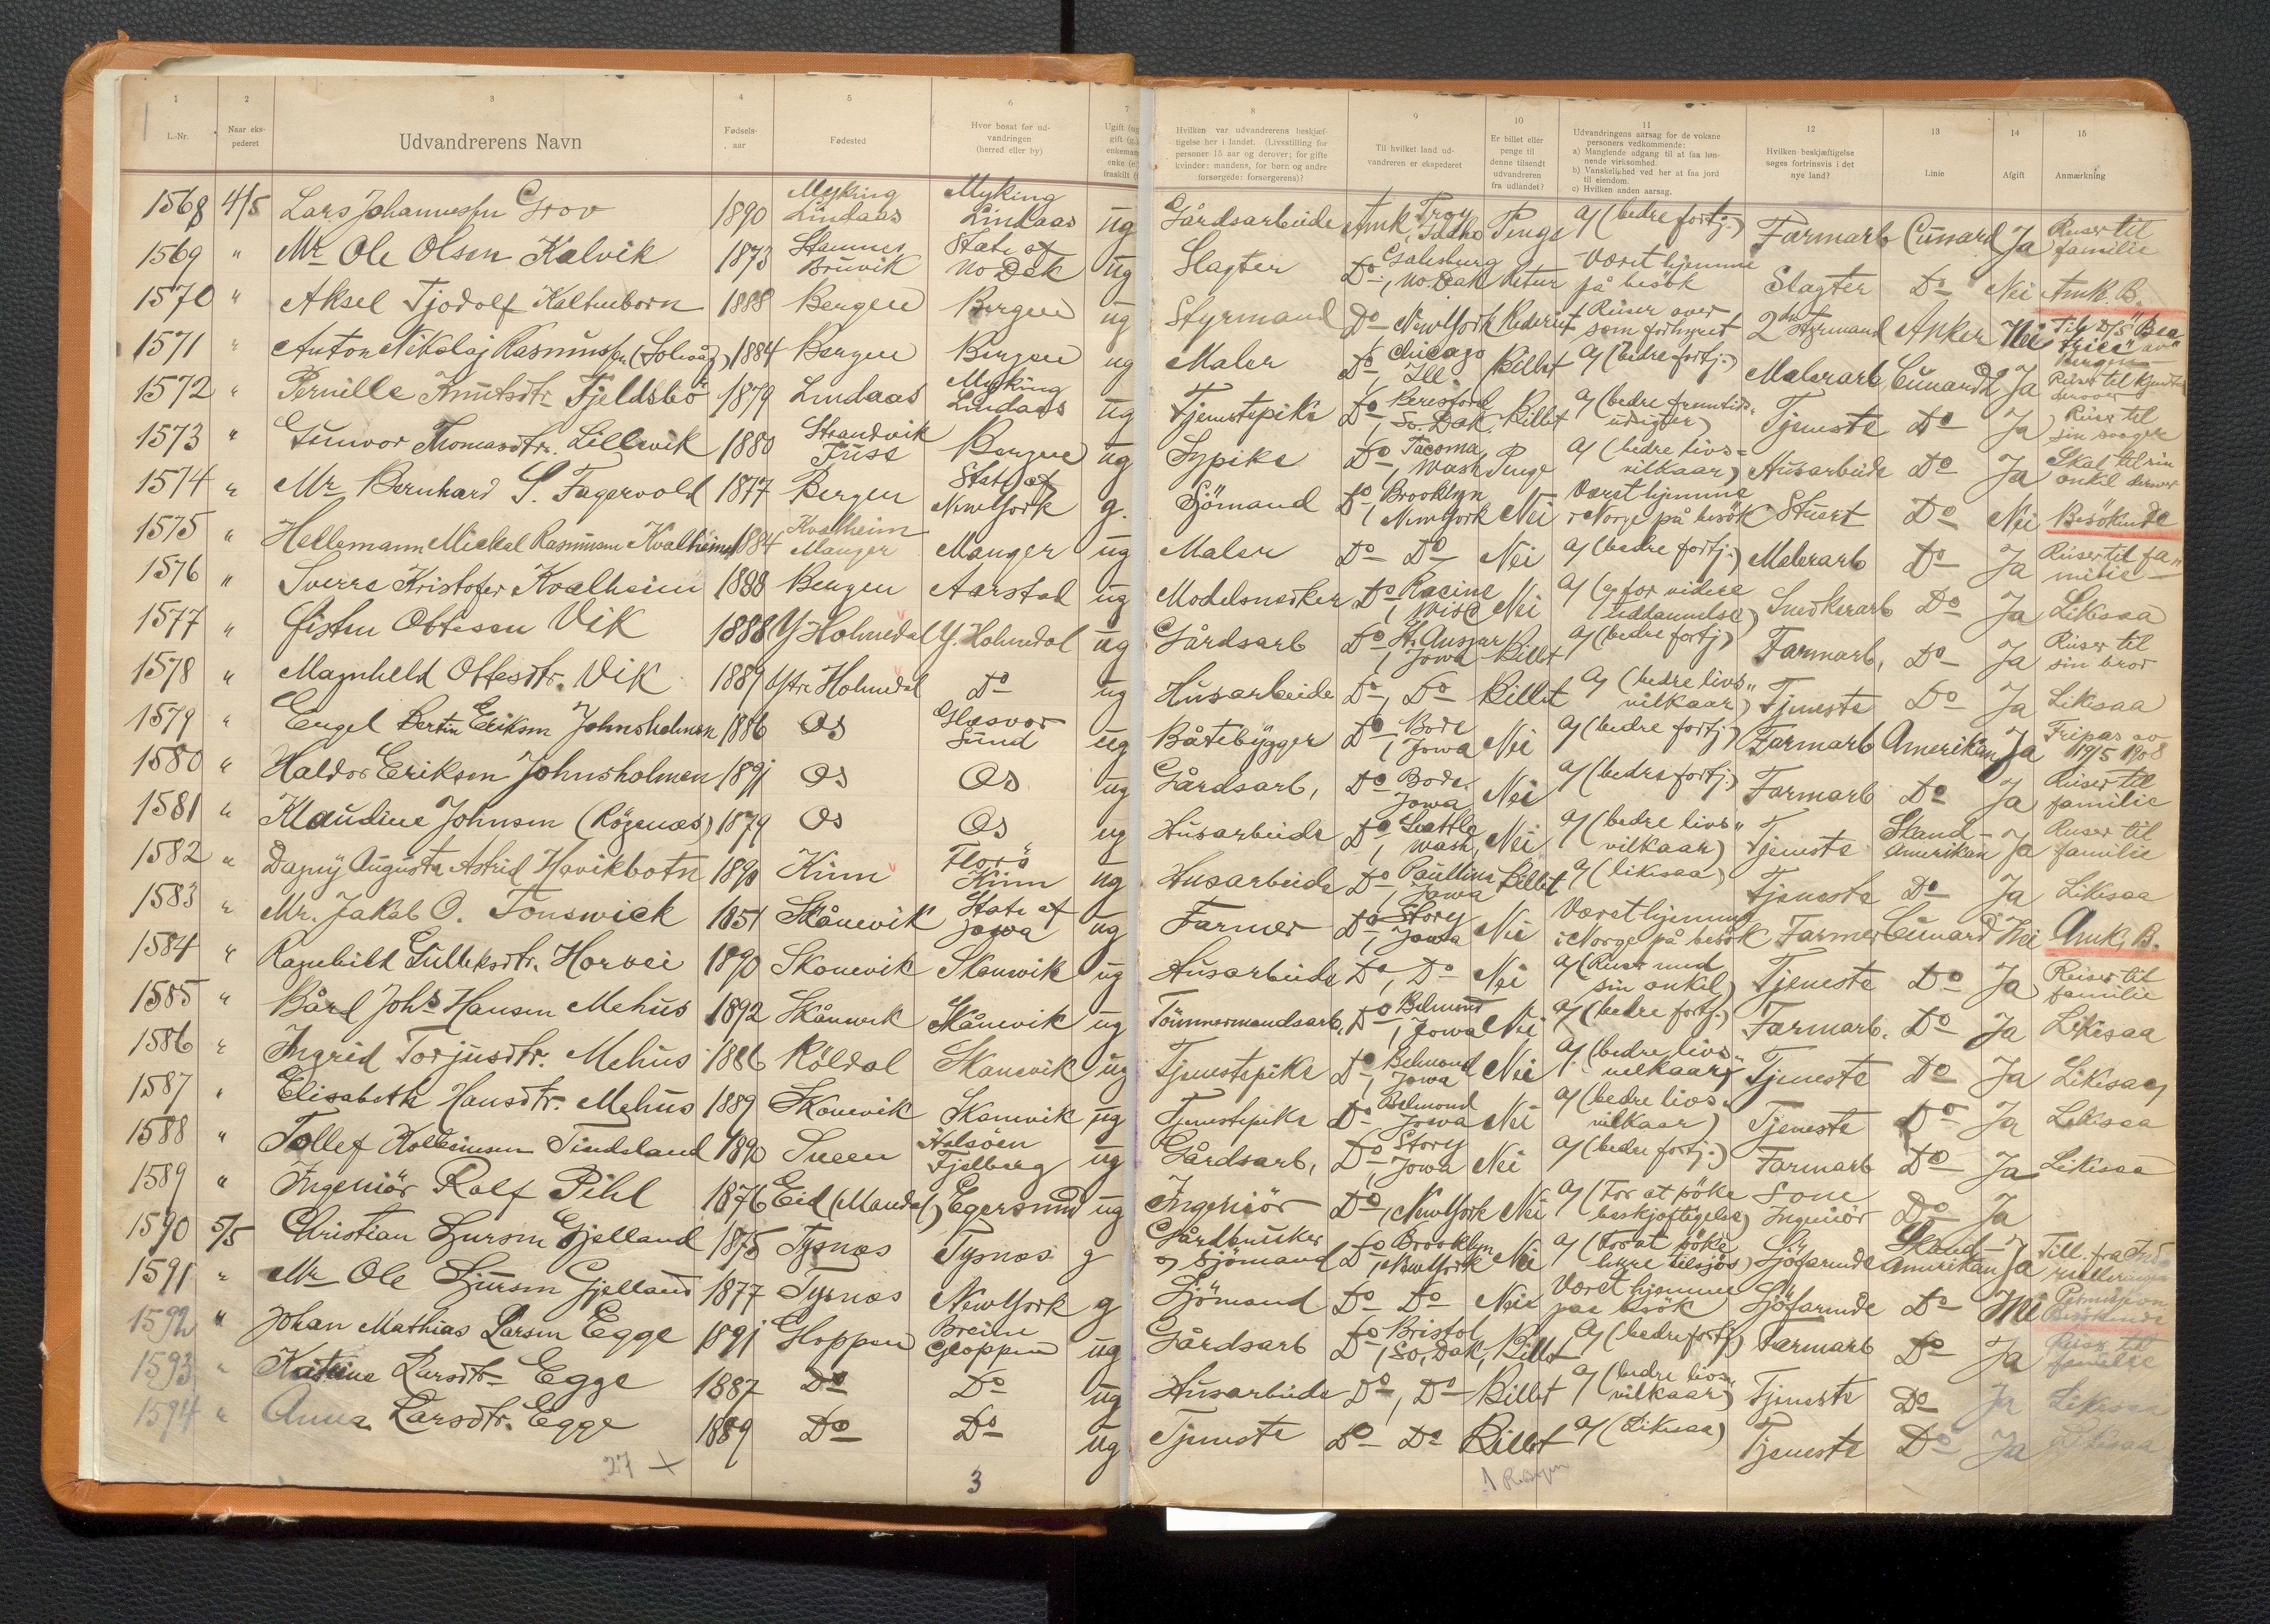 1 2 3 4 5 6 7 8 9 10 11 12 13 14 15
L.-Nr.
Naar ekspederet
Udvandrerens Navn
Fødselsaar
Fødested
Hvor bosat før udvandringen (herred eller by)
Hvilken var udvandrerens beskjæftigelse her i landet. (Livsstilling for personer 15 aar og derover; for gifte kvinder: mandens, for børn og andre forsørgede: forsørgerens)?
Til hvilket land udvandreren er ekspederet
Er billet eller penge til denne tilsendt udvandreren fra udlandet?
Udvandringens aarsag for de voksne personers vedkommende:
a) Manglende adgang til at faa lønnende virksomhed.
b) Vanskelighed ved her at faa jord til eiendom.
c) Hvilken anden aarsag.
Hvilken beskjæftigelse søges fortrinsvis i det nye land?
Linie
Afgift
Anmærkning
1568 4/5 Lars Johannessen Grov 1890 Myking Lindaas Myking Lindaas ug Gårdsarbeide Amk, Troy Idaho Penge a) (bedre fortj.) Farmarb Cunard Ja Reiser til familie
1569 " Mr Ole Olsen Kalvik 1873 Stamnes Bruvik State of No Dak ug Slagter Do, Galesburg No. Dak Retur Været hjemme på besök Slagter Do Nei Amk. B.
1570 " Aksel Tjodolf Kaltenborn 1888 Bergen Bergen ug Styrmand Do New York Rederiet Reiser over som forhyret 2den Styrmand Anker Nei Til D/S "Beatrice" av Bergen
1571 " Anton Nikolaj Rasmussen (Solvåg) 1884 Bergen Bergen ug Maler Do, Chicago Ill Billet a) (bedre fortj.) Malerarb Cunard Ja Reiser til kjendte derover
1572 " Pernille Knutsdtr Fjeldsbö 1879 Lindaas Myking Lindaas ug Tjenestepike Do, Beresford So. Dak. Billet a) (bedre fremtidsudsigter) Tjeneste Do Ja Reiser til sin svoger
1573 " Gunvor Thomasdtr. Lillevik 1880 Strandvik Fuse Bergen ug Sypike Do, Tacoma Wash Penge a) (bedre livsvilkaar) Husarbeide Do Ja Skal til sin onkel derover
1574 " Mr Bernhard S. Fagervold 1877 Bergen State of New York g. Sjömand Do, Brooklyn New York Nei Været hjemme i Norge på besök Stuert Do Nei Besökende
1575 " Hellemann Mickal Rasmussen Kvalheim 1884 Kvalheim Manger Manger ug Maler Do Do Nei a) (bedre fortj.) Malerarb Do Ja Reiser til familie
1576 " Sverre Kristofer Kvalheim 1888 Bergen Aarstad ug Modelsnedker Do, Racine Wisc Nei a) (for videre uddannelse) Snedkerarb Do Ja Likesaa
1577 " Østen Ottesen Vik 1888 Y Holmedal Y. Holmedal ug Gårdsarb Do, St. Ansgar Iowa Billet a) (bedre fortj) Farmarb, Do Ja Reiser til sin bror
1578 " Magnhild Ottesdtr. Vik 1889 Ytre Holmedal Do ug Husarbeide Do, Do Billet a) (bedre livsvilkaar) Tjeneste Do Ja Likesaa
1579 " Engel Bertin Eriksen Johnsholmen 1886 Os Glesvor Sund ug Båtebygger Do, Bode Iowa Nei a) (bedre fortj) Farmarb Amerikan Ja Fripas av 19/5 1908
1580 " Haldor Eriksen Johnsholmen 1891 Os Os ug Gårdsarb, Do Bode Iowa Nei a) (bedre fortj.) Farmarb Do Ja Reiser til familie
1581 " Klaudine Johnsen (Rögenæs) 1879 Os Os ug Husarbeide Do, Seattle Wash, Nei a) (bedre livsvilkaar) Tjeneste Skand-Amerikan Ja Reiser til familie
1582 " Dagny Augusta Astrid Havikbotn 1890 Kinn Florö Kinn ug Husarbeide Do, Paullina Iowa Billet a) (likesaa) Tjeneste Do Ja Likesaa
1583 " Mr. Jakob O. Tonswick 1851 Skånevik State of Iowa ug Farmer Do, Story Iowa Nei Været hjemme i Norge på besök Farmer Cunard Nei Amk, B.
1584 " Ragnhild Gulleksdtr. Horvei 1890 Skonevik Skonevik ug Husarbeide Do, Do Nei a) (Reiser med sin onkel) Tjeneste Do Ja Reiser til familie
1585 " Bård Johs Hansen Mehus 1892 Skånevik Skånevik ug Tömmermandsarb. Do, Belmond Iowa Nei a) (bedre fortj.) Farmarb. Do Ja Likesaa
1586 " Ingrid Torjusdtr. Mehus 1886 Röldal Skanevik ug Tjenestepike Do, Belmond Iowa Nei a) (bedre livsvilkaar) Tjeneste Do Ja Likesaa
1587 " Elisabeth Hansdtr. Mehus 1889 Skonevik Skonevik ug Tjenestepike Do Belmond Iowa Nei a) (bedre livsvilkaar) Tjeneste Do Ja Likesaa
1588 " Tollef Kolbeinsen Tindeland 1890 Sveen Halsöen Fjelberg ug Gårdsarb, Do, Story Iowa Nei a) (bedre fortj.) Farmarb Do Ja Likesaa
1589 " Ingeniör Rolf Pihl 1876 Eid (Mandal) Egersund ug Ingeniör Do, New York Nei a) (For at söke beskjæftigelse) Som Ingeniör Do Ja
1590 5/5 Christian Sjursen Gjelland 1875 Tysnæs Tysnæs g Gårdbruker og Sjömand Do, Brooklyn New York Nei a) (For at söke hyre tilsjös) Sjöfarende Skand-Amerikan Ja Till. fra Indrulleringen
1591 " Mr Ole Sjursen Gjelland 1877 Tysnæs New York g Sjömand Do Do Nei Været hjemme paa besök Sjöfarende Do Nei Permission Besökende
1592 " Johan Mathias Larsen Egge 1891 Gloppen Breim Gloppen ug Gårdsarb Do, Bristol So, Dak, Billet a) (bedre fortj) Farmarb Do Ja Reiser til familie
1593 " Katrine Larsdtr Egge 1887 Do Do ug Husarbeide Do, Do Billet a) (bedre livsvilkaar) Tjeneste Do Ja Likesaa
1594 " Anna Larsdtr. Egge 1889 Do Do ug Tjeneste Do Do Billet a) (Likesaa) Tjeneste Do Ja Likesaa
27 + 3 1